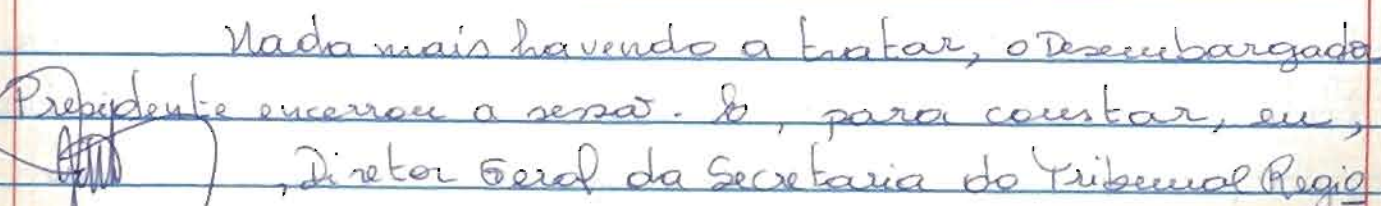 Nada mais havendo a tratar, o Desembargado
Presidente encerrou a sessão. E, para constar, eu,
, Diretor Geral da Secretaria do Tribunal Regio